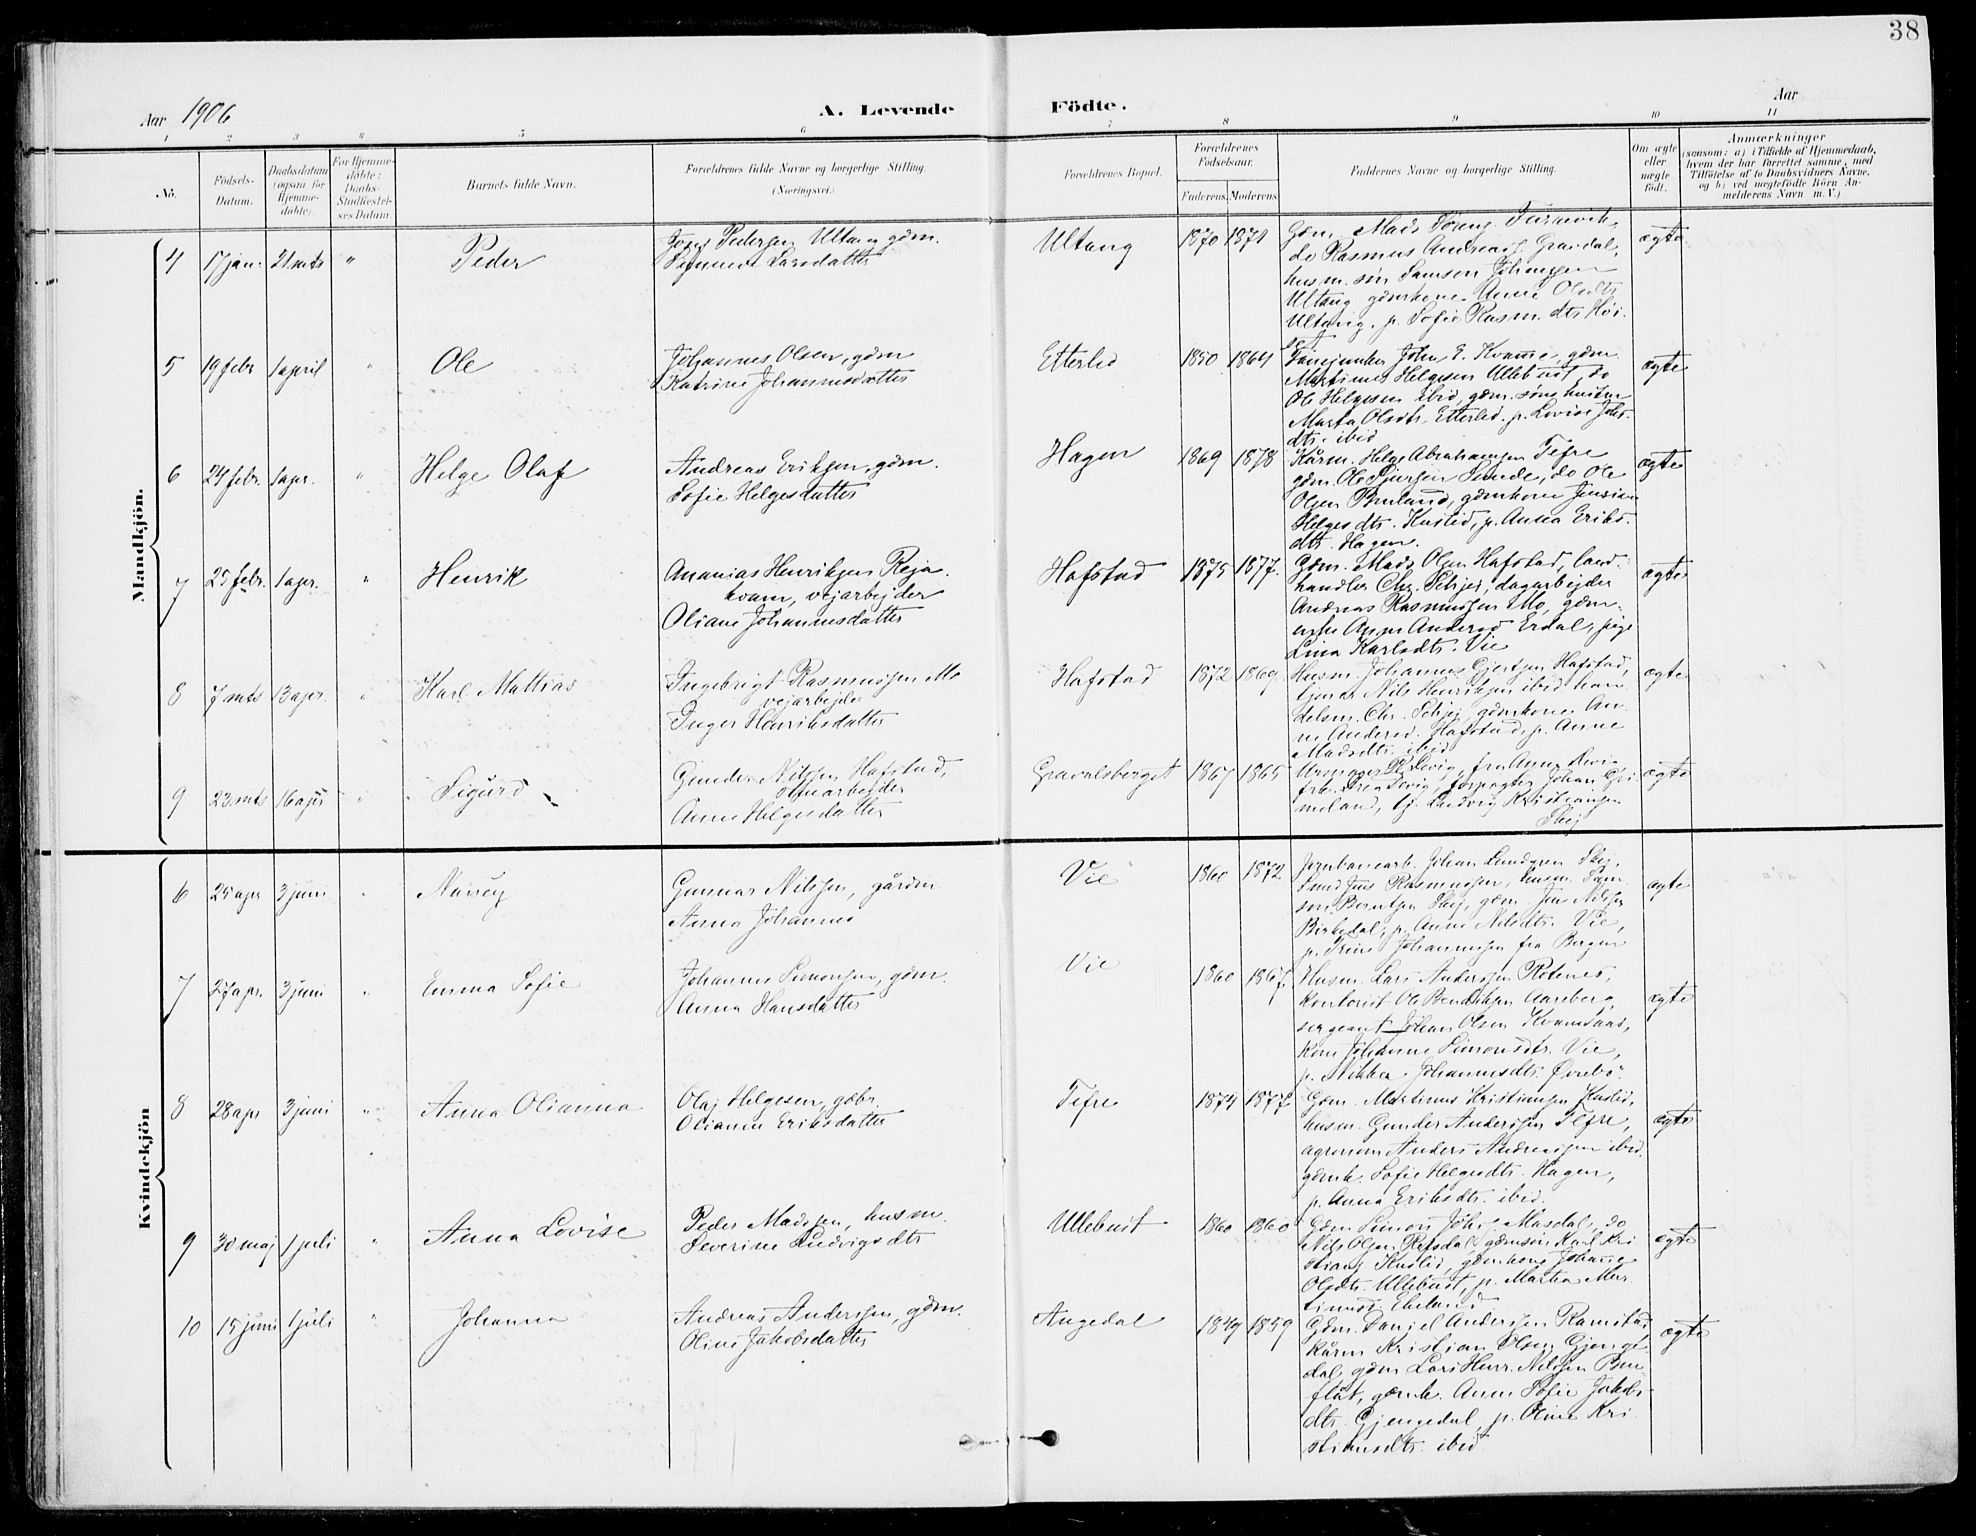 38
Aar 1906
A. Levende Födte.
Aar
1 2 3 4 5 6 7 8 9 10 11
No.
Födsels-Datum.
Daabsdatum (ogsaa for Hjemme-döbte).
For Hjemme-döbte: Daabs-Stadfæstel-ses Datum.
Barnets fulde Navn.
Forældrenes fulde Navne og borgerlige Stilling.
(Næringsvei.)
Forældrenes Bopæl.
Forældrenes Födselsaar.
Faderens. Moderens.
Faddernes Navne og borgerlige Stilling.
Om ægte eller uægte födt.
Anmærkninger
(saasom: a) i Tilfælde af Hjemmedaab,
hvem der har forrettet samme, med
Tilföielse af to Daabsvidners Navne,
og b) ved uægtefödte Börn An-
melderens Navn m. V.)
Mandkjön.
4 17 jan. 21 mts " Peder
Pedersen Ultang gdm.
Larsdatter
Ultang 1870 1871
Gdm. Mads
do Rasmus Andreas. Grandal,
husm. søn Samson Johannsen
Ultang gdmkone Anne Olsdtr
Ultang, p. Sofie Rasm. dtr.
ægte
5 19 febr 1 april " Ole
Johannes Olsen, gdm
Katrine Johannesdatter
Etterlid 1850 1864
John E. Kvamme, gdm.
Martinus Helgesen Ullebust, do
Ole Helgesen ibid, gdm. søns hustru
Marta Olsdtr. Etterlid, p. Lovise Johs.
dtr. ibid
ægte
6 24 febr. 1 apr. " Helge Olaf
Andreas Eriksen, gdm.
Sofie Helgesdatter
Hagen 1869 1878
Kårm. Helge Abrahamsen Tefre
gdm. Ole Sunde, do Ole
Olsen Bruland, gdmkone
Helgesdtr. Kusled, p. Anna Eriks.
dtr. Hagen.
ægte
7 25 febr. 1 apr. " Henrik
Ananias Henriksen Reja-
kvam, vejarbejder
Oliane Johannesdatter
Hafstad 1875 1877.
Gdm. Mads Olsen Hafstad, land-
handler Chr. dagarbejder
Andreas Rasmussen Mo, gdm.
Anne Andersd Erdal, pige
Lina Karlsdtr. Vie
ægte
8 7 mts 13 apr. " Karl Mattias
Ingebrigt Rasmussen Mo
vejarbejder
Inger Henriksdatter
Hafstad 1872 1869
Husm. Johannes Gjertsen Hafstad,
Nils Henriksen ibid, han-
delsm. Chr. gdmkone An-
ne Andersd. Hafstad, p. Anne
Madsdtr. ibid
ægte
9 23 mts 16 apr " Sigurd
Gunder Nilssen Hafstad,
Anne Helgesdatter
Gravalsberget 1867 1865
forpagter Johan
meland, Ludvig Kristiansen
ægte
Kvindekjön
6 25 apr 3 juni " Nancy
Gunnar Nilssen, gårdm
Anna Johannes
Vie 1860 1872
Jernbanearb. Johan
Rasmussen, husm. Sam-
son Berntsen gdm. Nilssen
Birkedal, p. Anne Nilsdtr. Vie,
p. Trine Johannessen fra Bergen
ægte
7 27 apr. 3 juni " Emma Sofie
Johannes Simonsen, gdm.
Anna Hansdatter
Vie 1860 1867.
Husm. Lars Anderssen Rotenes,
kontorist Ole Bendiksen Aareberg,
sergeant Johan Olsen Kvamsaas,
Kone Johanne Simonsdtr. Vie,
p. Mikkea Johannesdtr. Övrebö.
ægte
8 28 apr 3 juni " Anna Olianna
Olaj Helgesen, gdbr.
Olianne Eriksdatter
Tefre 1874 1877
Gdm. Martinus Kristiansen Kuslid,
husm. Gunder Anderssen Tefre,
agronom Anders Andreassen ibid,
gdmk. Sofie Helgesdtr. Hagen,
p. Anna Eriksdtr. ibid.
ægte
9 30 maj 1 juli " Anna Lovise
Peder Madssen, husm.
Severine Ludvigsdtr
Ullebust 1860 1860
Gdm. Simon Johs. Masdal, do
Nils Olsen Refsdal, gdmsøn Karl Kri-
stians. Kuslid, gdmkone Johanne
Olsdtr. Ullebust, p. Marta Mar-
tinusd.
ægte
10 15 juni 1 juli " Johanna
Andreas Anderssen, gdm.
Oline Jakobsdatter
Angedal 1849 1859
Gdm. Daniel Andersen Ramstad
Kårm Kristian Olsen Gjenge-
dal, gdm Lars Henr. Nilssen Bru-
flåt, gdmk. Anne Sofie Jakobs-
dtr. Gjengedal, p. Oline Kri-
stiansdtr. ibid
ægte